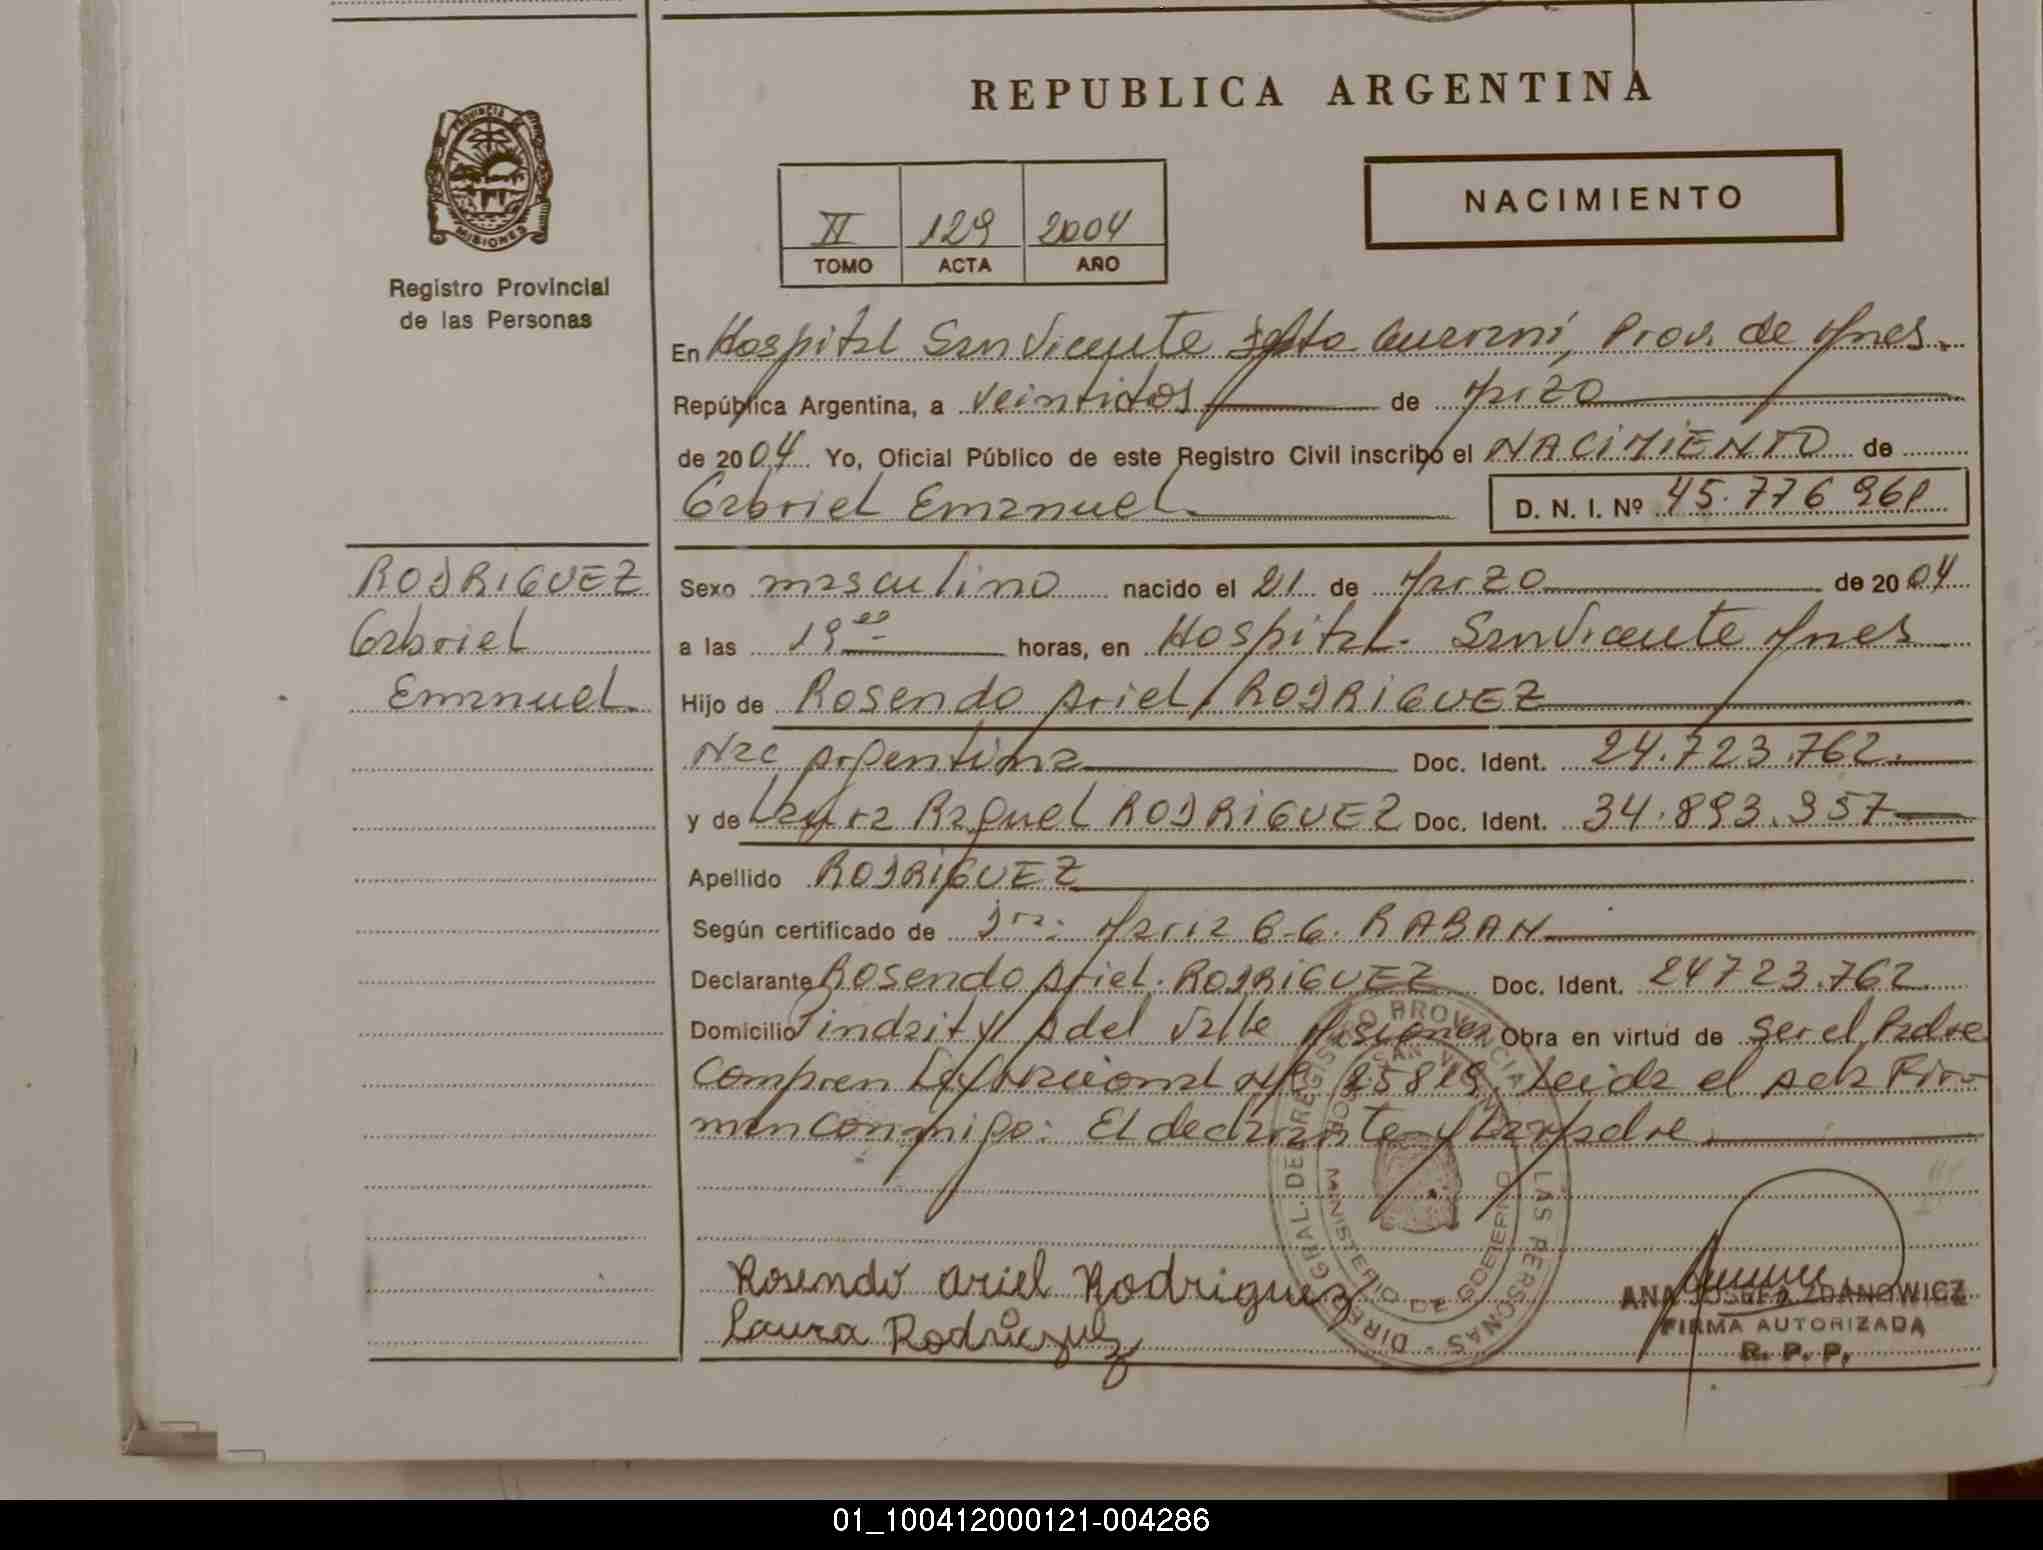 REPUBLICA ARGENTINA
PROVINCIA DE
MISIONES
Registro Provincial
de las Personas
II 129 2004
TOMO ACTA AÑO
NACIMIENTO
En Hospital San Vicente Dpto Guarani, Prov. de Mnes.
República Argentina, a veintidos de Marzo
de 2004 Yo, Oficial Público de este Registro Civil inscribo el NACIMIENTO de
Gabriel Emanuel D. N. I. Nº 45.776 961
RODRIGUEZ
Gabriel
Emanuel
Sexo masculino nacido el 21 de Marzo de 2004
a las 19 horas, en Hospital San Vicente Mnes
Hijo de Rosendo Ariel RODRIGUEZ
Nac Argentina Doc. Ident. 24.723.762
y de Laura Raquel RODRIGUEZ Doc. Ident. 34.893.957
Apellido RODRIGUEZ
Según certificado de Dra: Maria G. G. RABAN
Declarante Rosendo Ariel RODRIGUEZ Doc. Ident. 24723.762
Domicilio Pindaity A del Valle Misiones Obra en virtud de ser el Padre
Leida el Acta Fir-
man conmigo: El declarante y La Madre
DIREC. GRAL. DEL REGISTRO PROVINCIAL DE LAS PERSONAS
MINISTERIO DE GOBIERNO
Rosendo Ariel Rodriguez
Laura Rodriguez
ANA JOSEFA ZDANOWICZ
FIRMA AUTORIZADA
R. P. P.
01_100412000121-004286